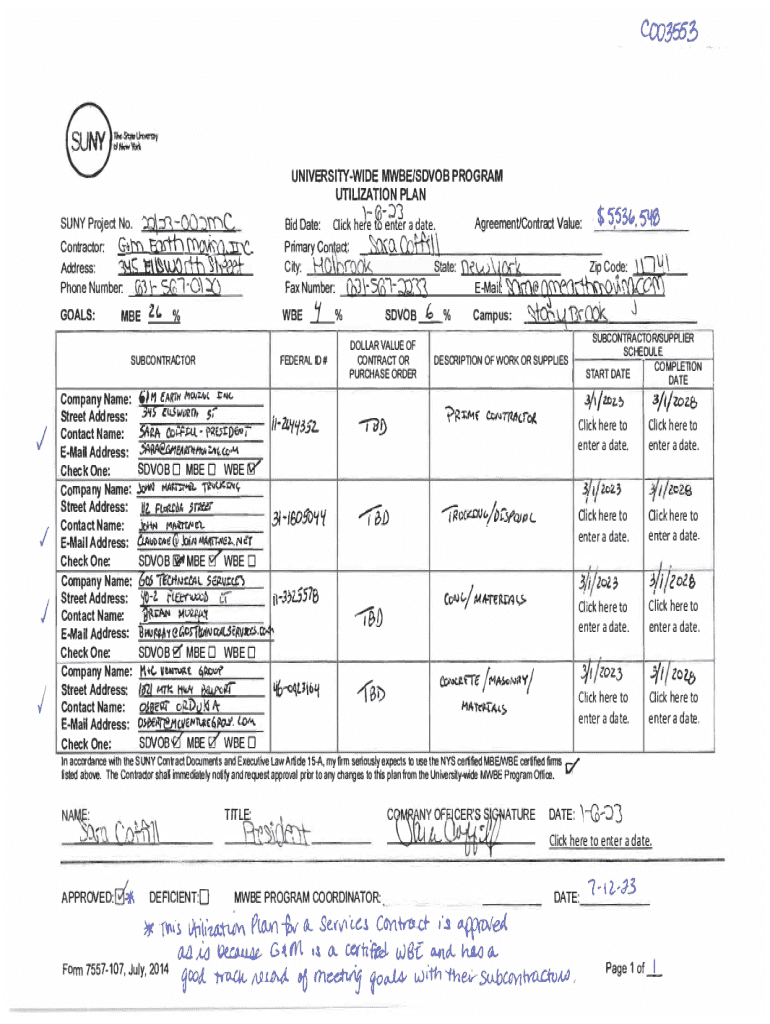 C003553
SUNY The State University
of New York
UNIVERSITY-WIDE MWBE/SDVOB PROGRAM
UTILIZATION PLAN
SUNY Project No. 22/23-002MC Bid Date: 1-6-23 Click here to enter a date. Agreement/Contract Value: $5,536,548
Contractor: G&M Earth Moving, Inc Primary Contact: Sara Coffill
Address: 345 Ellsworth Street City: Holbrook State: New York Zip Code: 11741
Phone Number: 631-567-0120 Fax Number: 631-567-2233 E-Mail:
GOALS: MBE 26 % WBE 4 % SDVOB 6 % Campus: Stony Brook
SUBCONTRACTOR FEDERAL ID # DOLLAR VALUE OF CONTRACT OR PURCHASE ORDER DESCRIPTION OF WORK OR SUPPLIES SUBCONTRACTOR/SUPPLIER SCHEDULE
START DATE COMPLETION DATE
Company Name: G/M EARTH MOVING INC 3/1/2023 3/1/2028
Street Address: 345 ELLSWORTH ST 11-2644352 TBD PRIME CONTRACTOR
Contact Name: SARA COFFILL - PRESIDENT Click here to enter a date. Click here to enter a date.
E-Mail Address: SARA@GMEARTHMOVING.COM
Check One: SDVOB MBE WBE
Company Name: JOHN MARTINEZ TRUCKING 3/1/2023 3/1/2028
Street Address: 112 FLORIDA STREET
Contact Name: JOHN MARTINEZ 31-1605044 TBD TRUCKING/DISPOSAL Click here to enter a date. Click here to enter a date.
E-Mail Address: CLAUDINE@JOHNMARTINEZ.NET
Check One: SDVOB MBE WBE
Company Name: GOS TECHNICAL SERVICES 3/1/2023 3/1/2028
Street Address: 40-2 FLEETWOOD CT 11-3325578 TBD CONC/MATERIALS
Contact Name: BRIAN MURRAY Click here to enter a date. Click here to enter a date.
E-Mail Address: BMURRAY@GOSTECHNICALSERVICES.COM
Check One: SDVOB MBE WBE
Company Name: M+C VENTURE GROUP 3/1/2023 3/1/2028
Street Address: 1821 MTK HWY BELLPORT 46-0923164 TBD CONCRETE/MASONRY/
Contact Name: OSBERT ORDUNA MATERIALS Click here to enter a date. Click here to enter a date.
E-Mail Address: OSBERT@MCVENTUREGROUP.COM
Check One: SDVOB MBE WBE
In accordance with the SUNY Contract Documents and Executive Law Article 15-A, my firm seriously expects to use the NYS certified MBE/WBE certified firms
listed above. The Contractor shall immediately notify and request approval prior to any changes to this plan from the University-wide MWBE Program Office.
NAME: TITLE: COMPANY OFFICER'S SIGNATURE DATE: 1-6-23
Sara Coffill President Sara Coffill
Click here to enter a date.
APPROVED: * DEFICIENT: MWBE PROGRAM COORDINATOR: DATE: 7-12-23
* This Utilization Plan for a Services Contract is approved
as is because G&M is a certified WBE and has a
good track record of meeting goals with their subcontractors.
Form 7557-107, July, 2014 Page 1 of 1